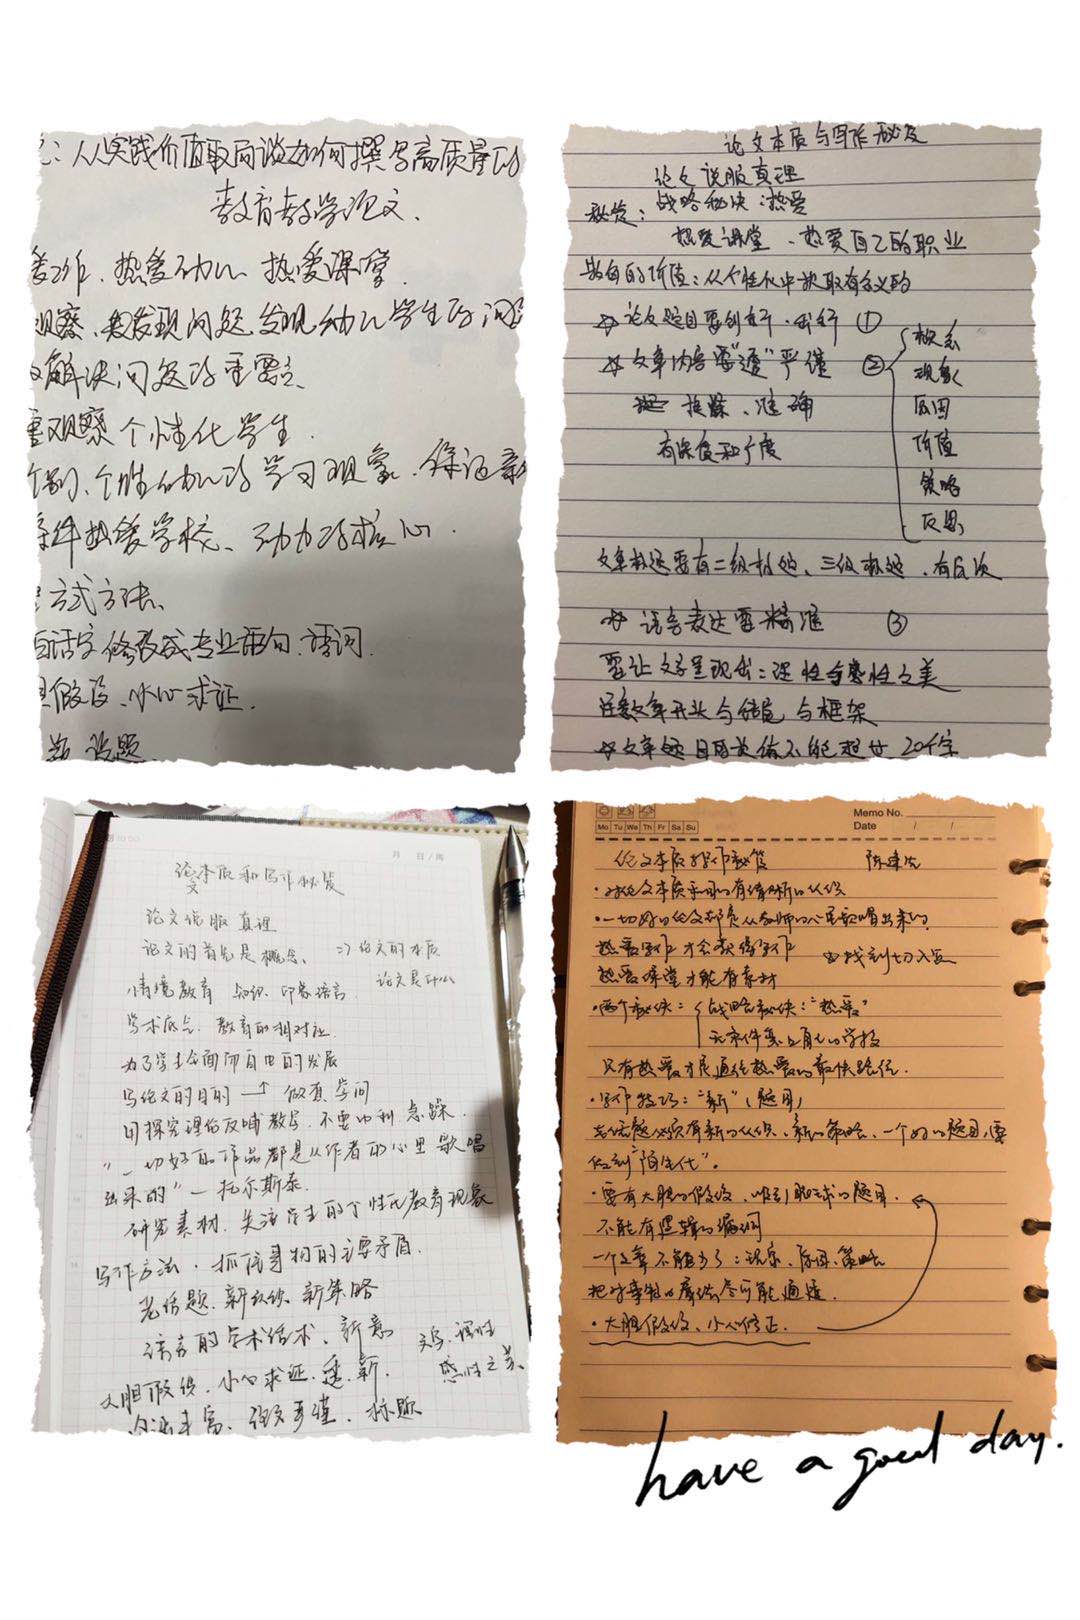 从实践价值取向谈如何撰写高质量的
教育教学论文.
热爱幼儿、热爱课堂.
观察、发现问题 发现幼儿学生的问题
解决问题的重要
观察个性化学生.
个别、个性幼儿的学习现象、保证
条件热爱学校、动力的核心.
方式方法、
白话字修改成专业语句、语词.
假设、小心求证.
论文本质与写作秘笈
论文说服真理
秘笈：战略秘决：热爱
热爱课堂、热爱自己的职业
教育的价值：从个性化中获取有意义的
论文题目要创新、出新 ①
文章内容要“透”严谨 ②
概念
现象
原因
价值
策略
反思
提炼、准确
有深度和广度
文章标题要有二级标题、三级标题、有层次
语言表达要精准 ③
要让文字呈现出：理性与感性之美
注意文章开头与结尾与框架
文章题目字数不能超过20个字
论文本质和写作秘笈
论文说服真理
论文的首先是概念、 论文的本质
论文是什么
情境教育 知识、印象语言.
学术原点、教育的相对性
为了学生全面而自由的发展
写论文的目的 → 做真学问
用探究理论反哺教学、不要功利、急躁.
“一切好的作品都是从作者的心里歌唱
出来的”—托尔斯泰.
研究素材、关注学生的个性化教育现象
写作方法、抓住事物的主要矛盾.
老话题、新认识、新策略
语言的学术话术、新意
文字、理性
感性之美、
大胆假设、小心求证、透、新.
内涵丰富、论文严谨、标题
Memo No.
Mo Tu We Th Fr Sa Su
Date / /
论文本质与写作秘笈 陈建先
·对论文本质要有清晰的认识
·一切好的论文都是从教师的心里歌唱出来的
热爱写作才会获得写作
热爱课堂才能有素材 找到切入点
·两个秘决：战略秘决：“热爱”
无条件爱上自己的学校
只有热爱才是通往热爱的最快路径.
·写作技巧：“新”（题目）
老话题必须有新的认识、新的策略、一个好的题目要
做到“陌生化”.
·要有大胆的假设、吸引眼球的题目.
不能有逻辑的漏洞
一个文章不能少了：现象、原因、策略
把对事物的看法尽可能通透.
·大胆假设、小心修正.
have a good day.